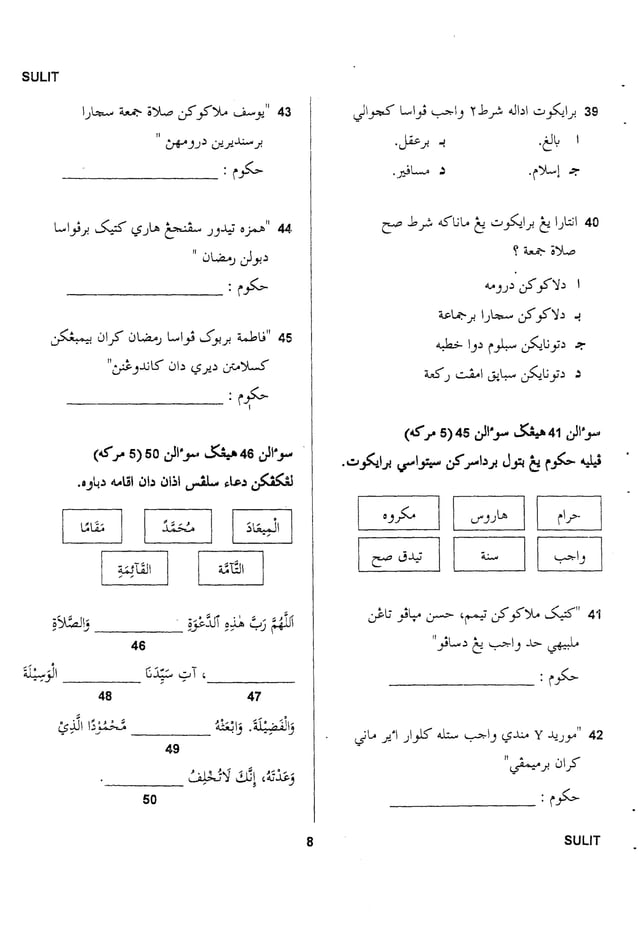 SULIT
39 برايكوت اداله شرط٢ واجب ڤواسا كچوالي
ا بالغ. بـ برعقل.
جـ إسلام. د مسافير.
40 انتارا يڠ برايكوت يڠ ماناكه شرط صح
صلاة جمعة ؟
ا دلاكوكن درومه
بـ دلاكوكن سچارا برجماعة
جـ دتونايكن سبلوم دوا خطبه
د دتونايكن سبايق امڤت ركعة
سوءالن 41 هيڠݢ سوءالن 45 (5 مركه)
ڤيليه حكوم يڠ بتول برداسركن سيتواسي برايكوت.
حرام هاروس مكروه
واجب سنة تيدق صح
41 "كتيك ملاكوكن تيمم، حسن مياڤو تاڠن
ملبيهي حد واجب يڠ دساڤو"
حكوم : ____________
42 "موريد Y مندي واجب ستله كلوار اءير ماني
كران برميمڤي"
حكوم : ____________
SULIT
43 "يوسف ملاكوكن صلاة جمعة سچارا
برسنديرين درومهن "
حكوم : ____________
44 "همزه تيدور سڤنجڠ هاري كتيک برڤواسا
دبولن رمضان "
حكوم : ____________
45 "فاطمة بربوک ڤواسا رمضان كران بيمبڠكن
كسلامتن ديري دان كاندوڠنن"
حكوم : ____________
سوءالن 46 هيڠݢ سوءالن 50 (5 مركه)
لڠكڤكن دعاء سلڤس اذان دان اقامه دباوه.
الْمِيعَادَ مُحَمَّدً مَقَامًا
التَّآمَّة القَآئِمَةِ
اَللَّهُمَّ رَبَّ هٰذِهِ الدَّعْوَةِ ____________ وَالصَّلَاةِ
46
____________، آتِ سَيِّدَنَا ____________ الْوَسِيْلَةَ
47 48
وَالْفَضِيْلَةَ. وَابْعَثْهُ ____________ مَّحْمُوْدًا الَّذِيْ
49
وَعَدْتَهُ، إِنَّكَ لَاتُخْلِفُ ____________.
50
8